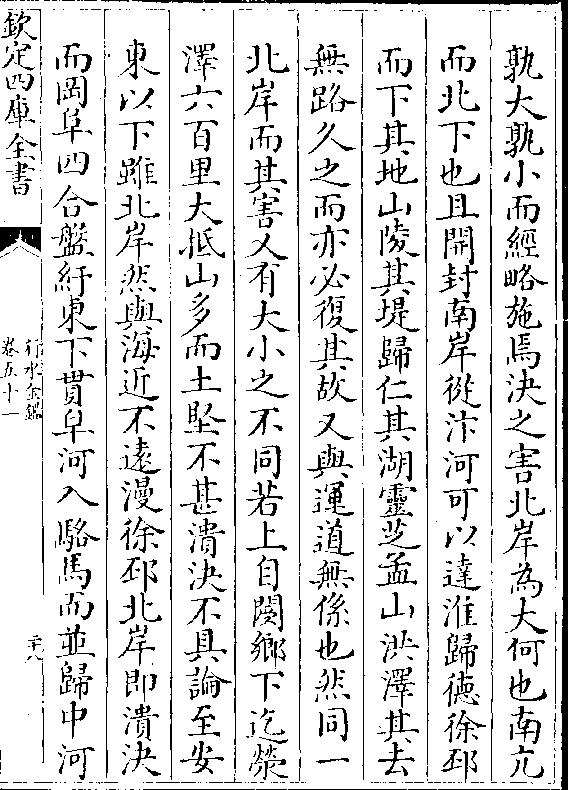 孰大孰小而經略施焉決之害北岸為大何也南亢
而北下也且開封南岸從汴河可以達淮歸德徐邳
而下其地山陵其堤歸仁其湖靈芝孟山洪澤其去
無路久之而亦必復其故又與運道無係也然同一
北岸而其害又有大小之不同若上自閿鄉下迄滎
澤六百里大抵山多而土堅不甚潰決不具論至安
東以下雖北岸然與海近不遠漫徐邳北岸即潰決
而岡阜四合盤紆東下貫皁河入駱馬而並歸中河
欽定四庫全書
行水金鑑
卷五十一